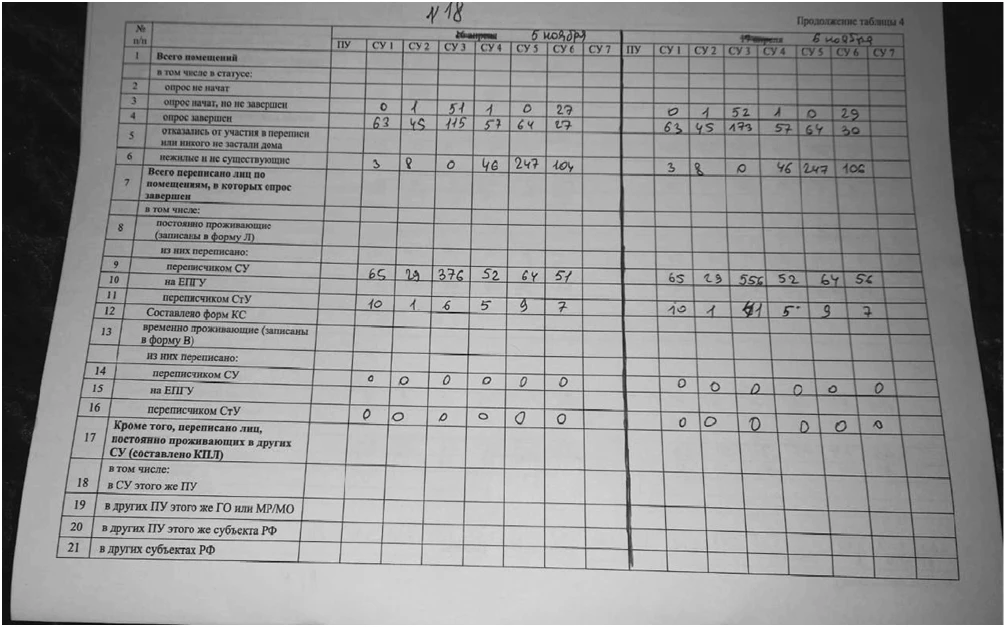 №18
Продолжение таблицы 4
№ п/п 16 апреля 5 ноября 6 ноября
ПУ СУ 1 СУ 2 СУ 3 СУ 4 СУ 5 СУ 6 СУ 7 ПУ СУ 1 СУ 2 СУ 3 СУ 4 СУ 5 СУ 6 СУ 7
1 Всего помещений
в том числе в статусе:
2 опрос не начат
3 опрос начат, но не завершен 0 1 51 1 0 27 0 1 52 1 0 29
4 опрос завершен 63 45 115 57 64 27 63 45 173 57 64 30
5 отказались от участия в переписи
или никого не застали дома
6 нежилые и не существующие 3 8 0 46 247 104 3 8 0 46 247 106
7 Всего переписано лиц по
помещениям, в которых опрос
завершен
в том числе:
8 постоянно проживающие
(записаны в форму Л)
из них переписано:
9 переписчиком СУ 65 29 376 52 64 51 65 29 556 52 64 56
10 на ЕПГУ
11 переписчиком СтУ 10 1 6 5 9 7 10 1 11 5 9 7
12 Составлено форм КС
13 временно проживающие (записаны
в форму В)
из них переписано:
14 переписчиком СУ 0 0 0 0 0 0 0 0 0 0 0 0
15 на ЕПГУ
16 переписчиком СтУ 0 0 0 0 0 0 0 0 0 0 0 0
17 Кроме того, переписано лиц,
постоянно проживающих в других
СУ (составлено КПЛ)
в том числе:
18 в СУ этого же ПУ
19 в других ПУ этого же ГО или МР/МО
20 в других ПУ этого же субъекта РФ
21 в других субъектах РФ